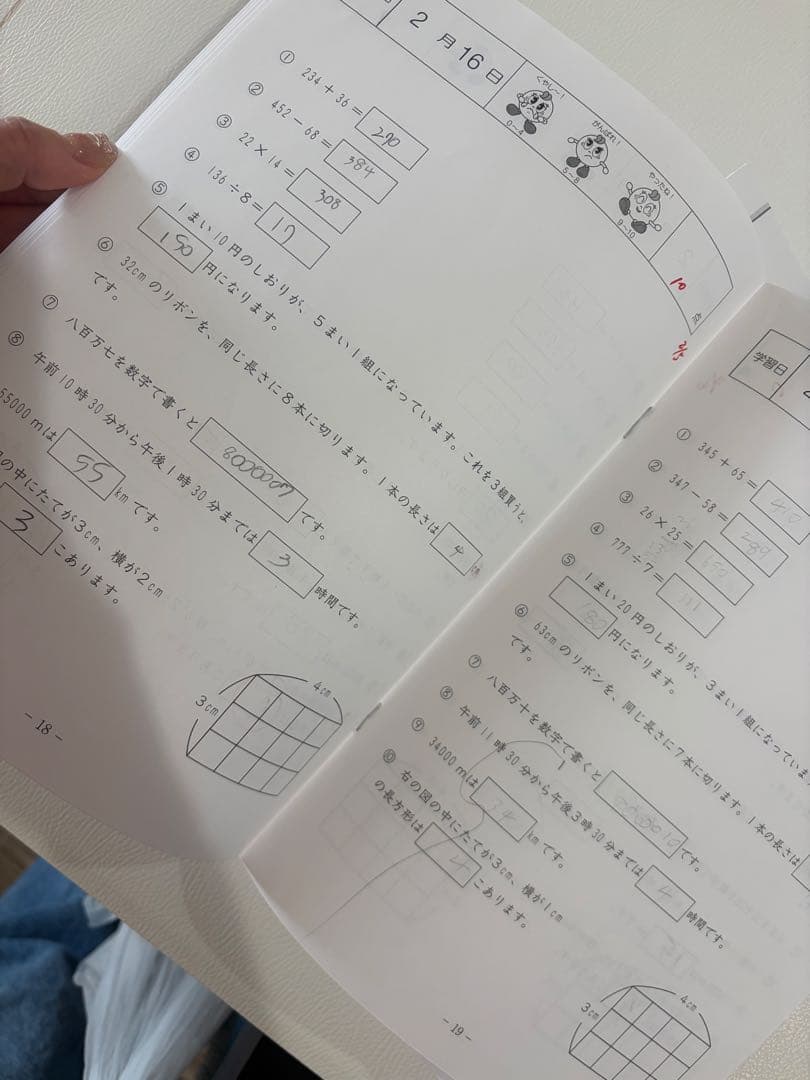 2月16日
くやし〜!
0〜4
がんばれ!
5〜8
やったね!
9〜10
10
点
① 234+36= 270
② 452-68= 384
③ 22×14= 308
④ 136÷8= 17
⑤ 1まい10円のしおりが、5まい1組になっています。これを3組買うと、
150 円になります。
⑥ 32cmのリボンを、同じ長さに8本に切ります。1本の長さは 4 cm
です。
⑦ 八百万七を数字で書くと 8000007 です。
⑧ 午前10時30分から午後1時30分までは 3 時間です。
55000mは 55 kmです。
の中にたてが3cm、横が2cm
3 こあります。
3cm
4cm
- 18 -
学習日
① 345+65= 410
② 347-58= 289
③ 26×25= 650
④ 777÷7= 111
⑤ 1まい20円のしおりが、3まい1組になっていま
180 円になります。
⑥ 63cmのリボンを、同じ長さに7本に切ります。1本の長さは
です。
⑦ 八百万十を数字で書くと 8000010 です。
⑧ 午前11時30分から午後3時30分までは 4 時間です。
⑨ 34000mは 34 kmです。
⑩ 右の図の中にたてが3cm、横が1cm
の長方形は 4 こあります。
3cm
4cm
- 19 -